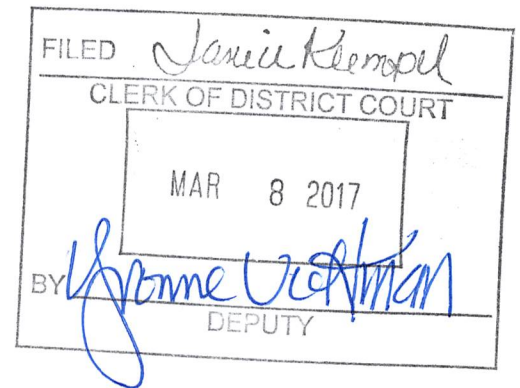 FILED Janice Klempel
CLERK OF DISTRICT COURT
MAR 8 2017
BY Yvonne Vicktman
DEPUTY